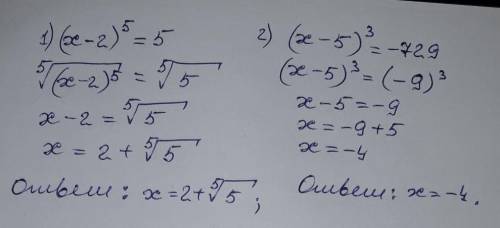 1) (x-2)⁵ = 5
⁵√(x-2)⁵ = ⁵√5
x-2 = ⁵√5
x = 2 + ⁵√5
Ответ: x=2+⁵√5;
2) (x-5)³ = -729
(x-5)³ = (-9)³
x-5 = -9
x = -9+5
x = -4
Ответ: x=-4.